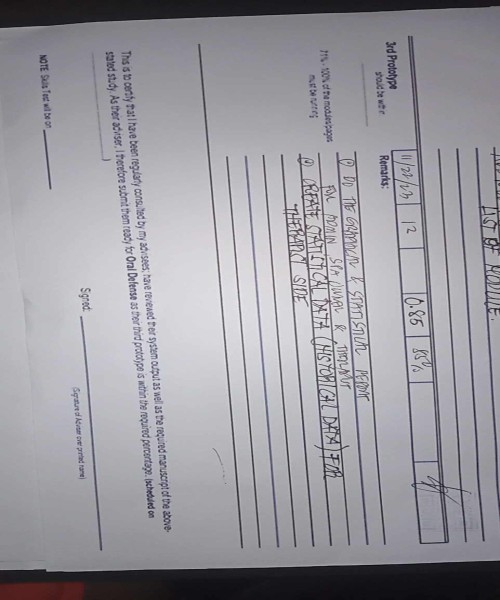 LIST OF MODULE.
3rd Prototype
should be with in
71% - 100% of the modules/pages
must be running
11/22/23 12 0.85 85%
Remarks:
① DO THE GRAPHICAL & STATISTICAL REPORT
FOR ADMIN, SPA OWNER & THERAPIST
② CREATE STATISTICAL DATA (HISTORICAL DATA) FOR
THERAPIST SIDE
This is to certify that I have been regularly consulted by my advisees, have reviewed their system output as well as the required manuscript of the above-
stated study. As their adviser, I therefore submit them ready for Oral Defense as their third prototype is within the required percentage. (scheduled on
____________)
Signed: ____________
(Signature of Adviser over printed name)
NOTE: Skills Test will be on ____________